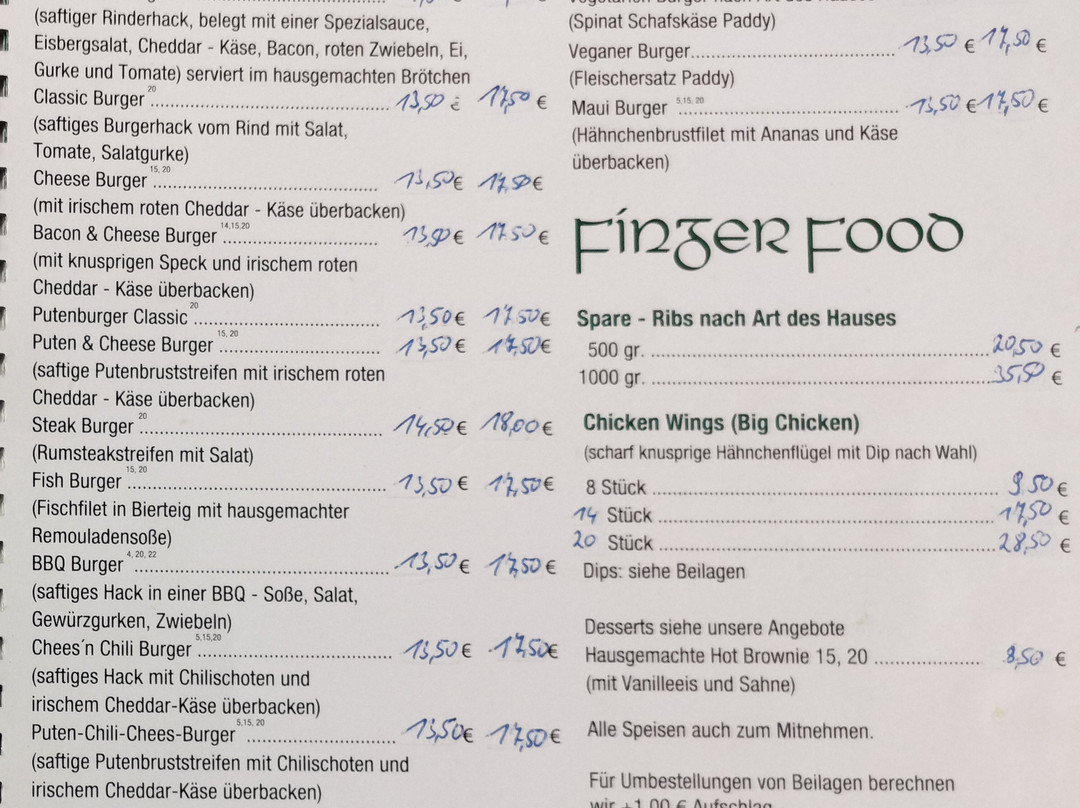 (saftiger Rinderhack, belegt mit einer Spezialsauce,
Eisbergsalat, Cheddar - Käse, Bacon, roten Zwiebeln, Ei,
Gurke und Tomate) serviert im hausgemachten Brötchen
Classic Burger 20 ........ 13,50 € 17,50 €
(saftiges Burgerhack vom Rind mit Salat,
Tomate, Salatgurke)
Cheese Burger 15, 20 ........ 13,50 € 17,50 €
(mit irischem roten Cheddar - Käse überbacken)
Bacon & Cheese Burger 14,15,20 ........ 13,50 € 17,50 €
(mit knusprigen Speck und irischem roten
Cheddar - Käse überbacken)
Putenburger Classic 20 ........ 13,50 € 17,50 €
Puten & Cheese Burger 15, 20 ........ 13,50 € 17,50 €
(saftige Putenbruststreifen mit irischem roten
Cheddar - Käse überbacken)
Steak Burger 20 ........ 14,50 € 18,00 €
(Rumsteakstreifen mit Salat)
Fish Burger 15, 20 ........ 13,50 € 17,50 €
(Fischfilet in Bierteig mit hausgemachter
Remouladensoße)
BBQ Burger 4, 20, 22 ........ 13,50 € 17,50 €
(saftiges Hack in einer BBQ - Soße, Salat,
Gewürzgurken, Zwiebeln)
Chees´n Chili Burger 5,15,20 ........ 13,50 € 17,50 €
(saftiges Hack mit Chilischoten und
irischem Cheddar-Käse überbacken)
Puten-Chili-Chees-Burger 5,15, 20 ........ 13,50 € 17,50 €
(saftige Putenbruststreifen mit Chilischoten und
irischem Cheddar-Käse überbacken)
(Spinat Schafskäse Paddy)
Veganer Burger ........ 13,50 € 17,50 €
(Fleischersatz Paddy)
Maui Burger 5,15, 20 ........ 13,50 € 17,50 €
(Hähnchenbrustfilet mit Ananas und Käse
überbacken)
Finger Food
Spare - Ribs nach Art des Hauses
500 gr. ........ 20,50 €
1000 gr. ........ 35,50 €
Chicken Wings (Big Chicken)
(scharf knusprige Hähnchenflügel mit Dip nach Wahl)
8 Stück ........ 9,50 €
14 Stück ........ 17,50 €
20 Stück ........ 28,50 €
Dips: siehe Beilagen
Desserts siehe unsere Angebote
Hausgemachte Hot Brownie 15, 20 ........ 8,50 €
(mit Vanilleeis und Sahne)
Alle Speisen auch zum Mitnehmen.
Für Umbestellungen von Beilagen berechnen
wir +1,00 € Aufschlag